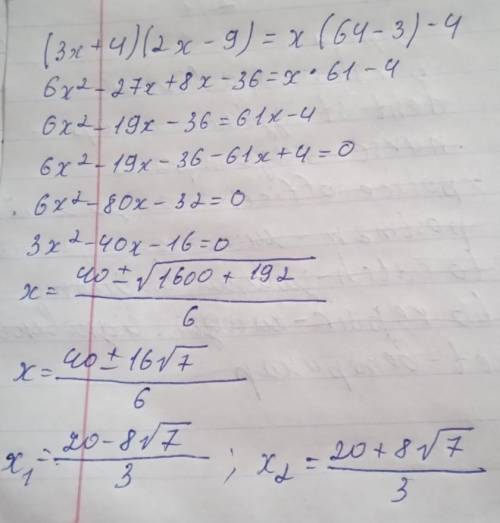 (3x+4)(2x-9)=x(64-3)-4
6x²-27x+8x-36=x·61-4
6x²-19x-36=61x-4
6x²-19x-36-61x+4=0
6x²-80x-32=0
3x²-40x-16=0
x=(40±√(1600+192))/6
x=(40±16√7)/6
x₁=(20-8√7)/3 ; x₂=(20+8√7)/3